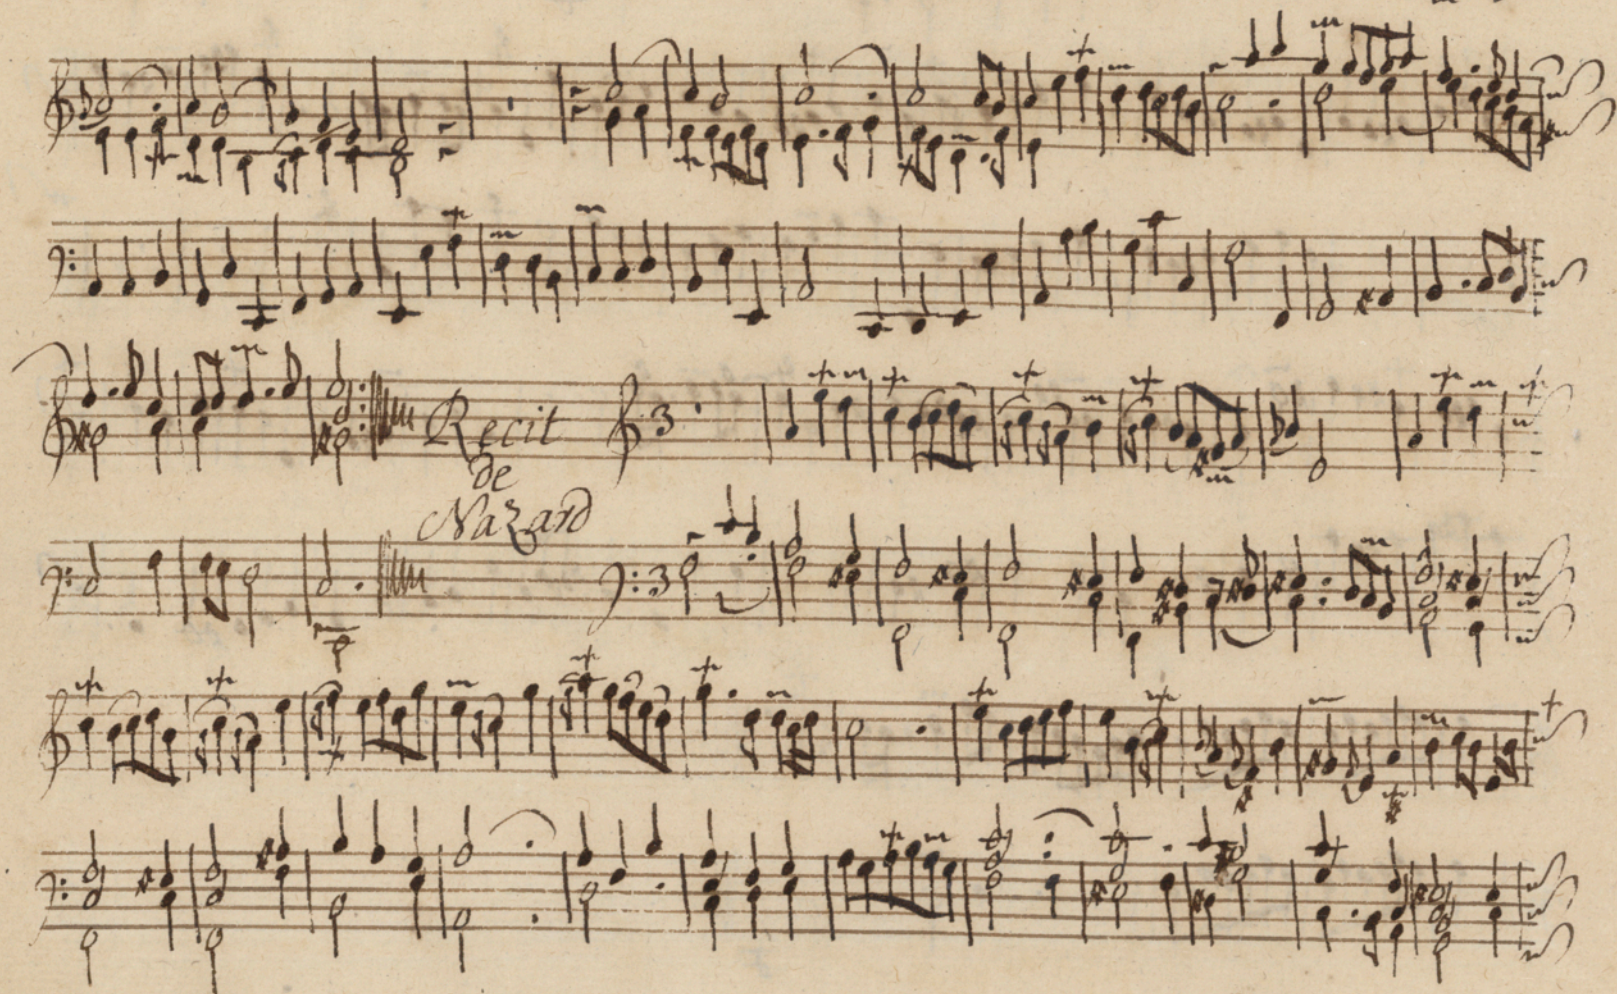 Recit
de
Nazard
3
3